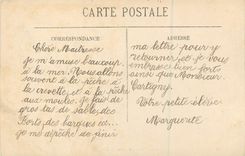 CARTE POSTALE
CORRESPONDANCE
ADRESSE
Chère Maîtresse
Je m'amuse beaucoup
à la mer. Nous allons
souvent à la pêche à
la crevette et à la pêche
aux moules. Je fais de
gros tas de sable, des
forts, des barques et...
je me dépêche de finir
ma lettre pour y
retourner et je vous
embrasse bien fort
ainsi que Monsieur
Cartigny.
Votre petite élève
Marguerite